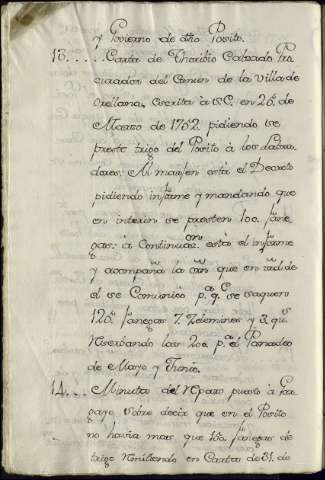 y Govierno de dho Posito.
13..... Carta de Thoribio Calzado Pro
curador del Comun de la Villa de
Orellana, escrita à S.E. en 26 de
Marzo de 1752 pidiendo se
preste trigo del Posito à los Labra
dores: Al margen està el Decreto
pidiendo informe y mandando que
en interin se presten 100. fane
gas: à continuaz.on està el informe
y acompaña la orn que en vrd de
el se Comunicò p.a q.e se saquen
126. fanegas 7. zelemines y 3 qu.s
reservando las 200 p.a el Panadeo
de Mayo y Junio.
14.... Minuta del reparo puesto à
gayo sobre decir que en el Posito
no havia mas que fanegas de
trigo resultando en Cartas de 31. de